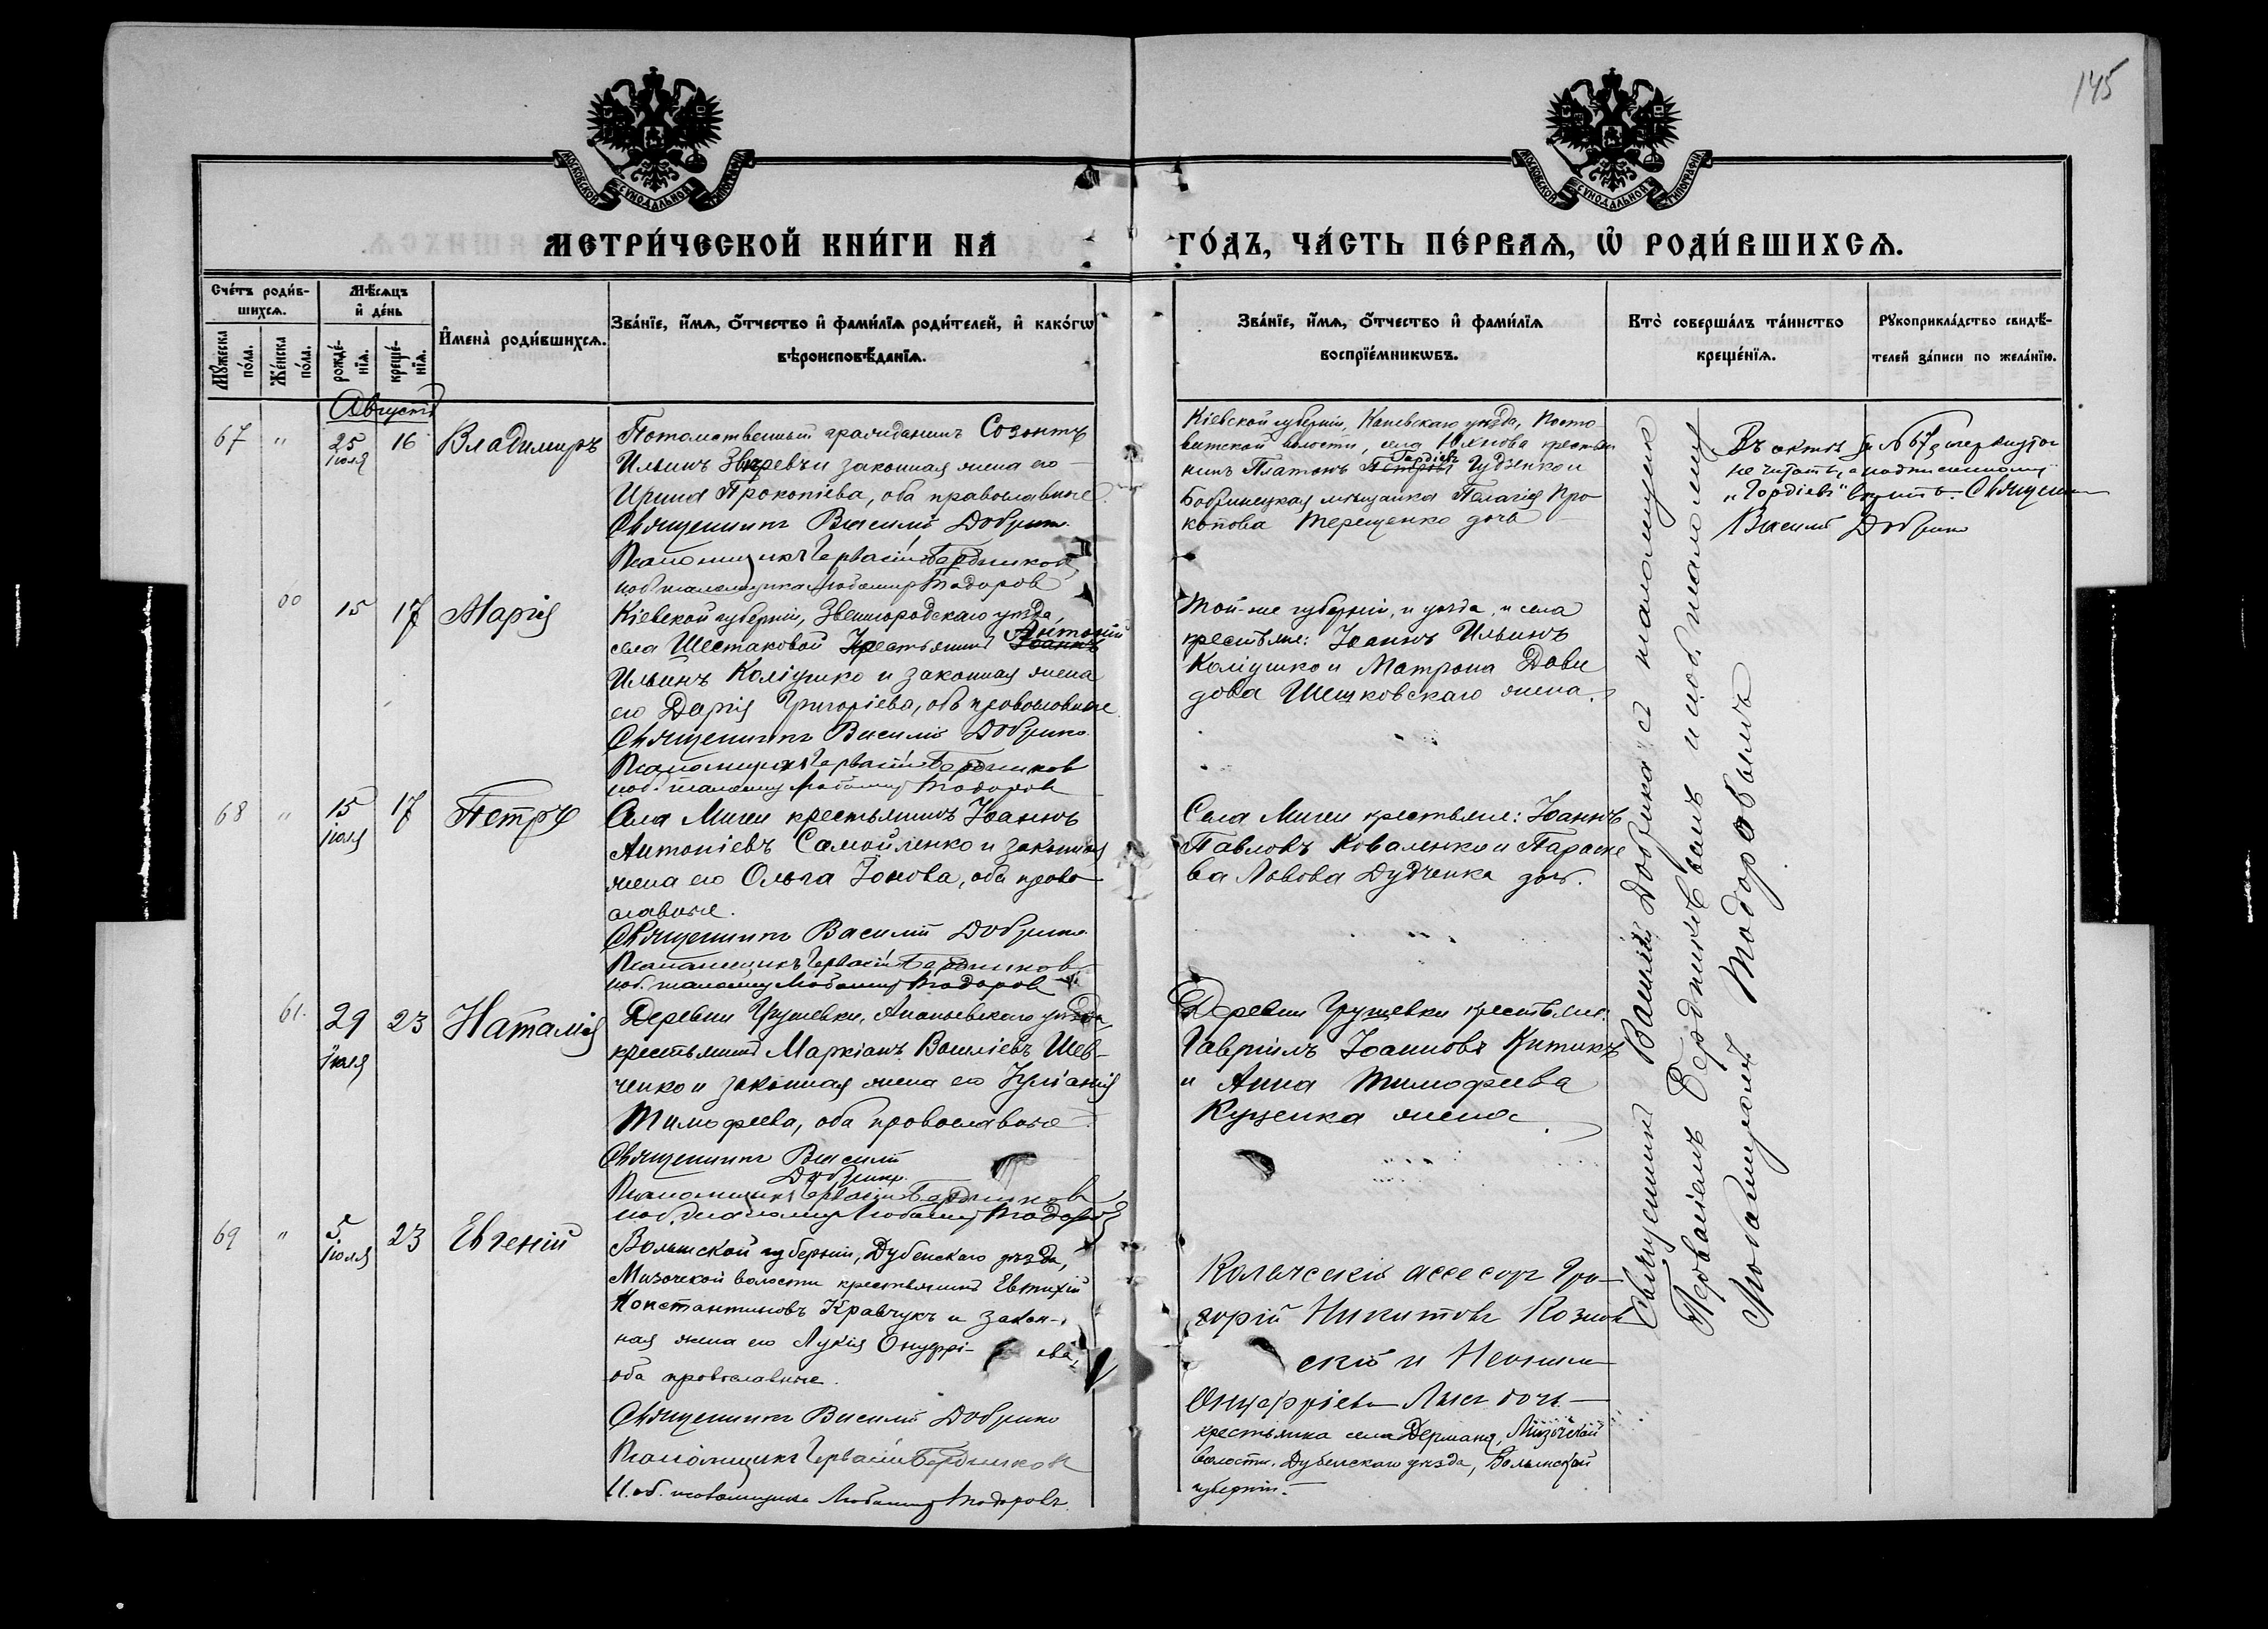 145
МОСКОВСКОЙ СУНОДАЛЬНОЙ ТИПОГРАФІИ
МОСКОВСКОЙ СУНОДАЛЬНОЙ ТИПОГРАФІИ
МЕТРИ́ЧЕСКОЙ КНИ́ГИ НА
ГО́ДЪ, ЧА́СТЬ ПЕ́РВАѦ, Ѡ РОДИ́ВШИХСѦ.
Сче́тъ роди́в-
шихсѧ.
Мѣ́сѧцъ
и҆ де́нь
Мꙋ́жеска
по́ла.
Же́нска
по́ла.
рожде́-
нїѧ.
креще́-
нїѧ.
И҆мена̀ роди́вшихсѧ.
Зва́нїе, и҆́мѧ, ѻ҆́тчество и҆ фами́лїѧ роди́телей, и҆ како́гѡ
вѣроисповѣ́данїѧ.
Зва́нїе, и҆́мѧ, ѻ҆́тчество и҆ фами́лїѧ
воспрїе́мникѡвъ.
Кто̀ соверша́лъ та́инство
креще́нїѧ.
Рꙋкоприкла́дство свидѣ́-
телей за́писи по жела́нїю.
Августъ
67 " 25 Іюля 16 Владимиръ
Потомственный гражданинъ Созонтъ
Ильинъ Звѣревъ и законная жена его
Ирина Прокопіева, оба православные
Священникъ Василій Добрин
Псаломщикъ Герваій Бердников
псаломщика Любомир Тодоров
Кіевской губерніи, Каневскаго уѣзда,
волости, села крестья
нинъ Платонъ Петровъ Гордіевъ Гудзенко и
Бобринецкая мѣщанка Пелагія Про
копова Терещенко дочь
Въ актѣ за № 67 зачеркнутое
не читать, а надписанному
"Гордіевъ" вѣрить. Священ
Василій Добрин
60 15 17 Марія
Кіевской губерніи, Звенигородскаго уѣзда,
села Шестаковой Крестьянинъ Іоаннъ Антоній
Ильинъ Коліушко и законная жена
его Дарія Григоріева, оба православные
Священникъ Василій Добрин
Псаломщикъ Герваій Бердников
псаломщ Любомир Тодоров
Той-же губерніи, и уѣзда, и села
крестьяне: Іоаннъ Ильинъ
Коліушко и Матрона Дави
дова Шешковскаго жена.
68 " 15 Іюля 17 Петръ
Села Мигеи крестьянинъ Іоаннъ
Антоніевъ Самойленко и законная
жена его Ольга Іонова, оба право
славные.
Священникъ Василій Добрин
Псаломщикъ Герваій Бердников
псаломщ Любомир Тодоров
Села Мигеи крестьяне: Іоаннъ
Павловъ Коваленко и Параске
ва Львова Дудченка дочь.
61. 29 Іюля 23 Наталія
Деревни Грушевки, Ананьевскаго уѣзда,
крестьянинъ Маркіанъ Василіевъ Шев-
ченко и законная жена его Іуліанія
Тимофеева, оба православные
Священникъ Василій
Добрин
Псаломщикъ Герваій Бердников
псаломщ Любомир Тодоров
Деревни Грушевки крестьяне:
Гавріилъ Іоанновъ Китикъ
и Анна Тимофеева
Куценка жена.
69 " 5 Іюля 23 Евгеній
Волынской губерніи, Дубенскаго уѣзда,
Мизочской волости крестьянинъ Евтихій
Константиновъ Кравчукъ и закон-
ная жена его Лукія Онуфрі- ева,
оба православные.
Священникъ Василій Добрин
Псаломщикъ Герваій Бердников
И. об. псаломщика Любомир Тодоровъ
Колежскій ассесоръ Гри-
горій Никитовъ
скій и
Онуфріева дочь
крестьянка села Дермань, Мизочской
волости, Дубенскаго уѣзда, Волынской
губерніи.
Священникъ Василій Добрин съ псаломщик
Бердниковымъ и и.об. псаломщ
Любомиромъ Тодоровымъ